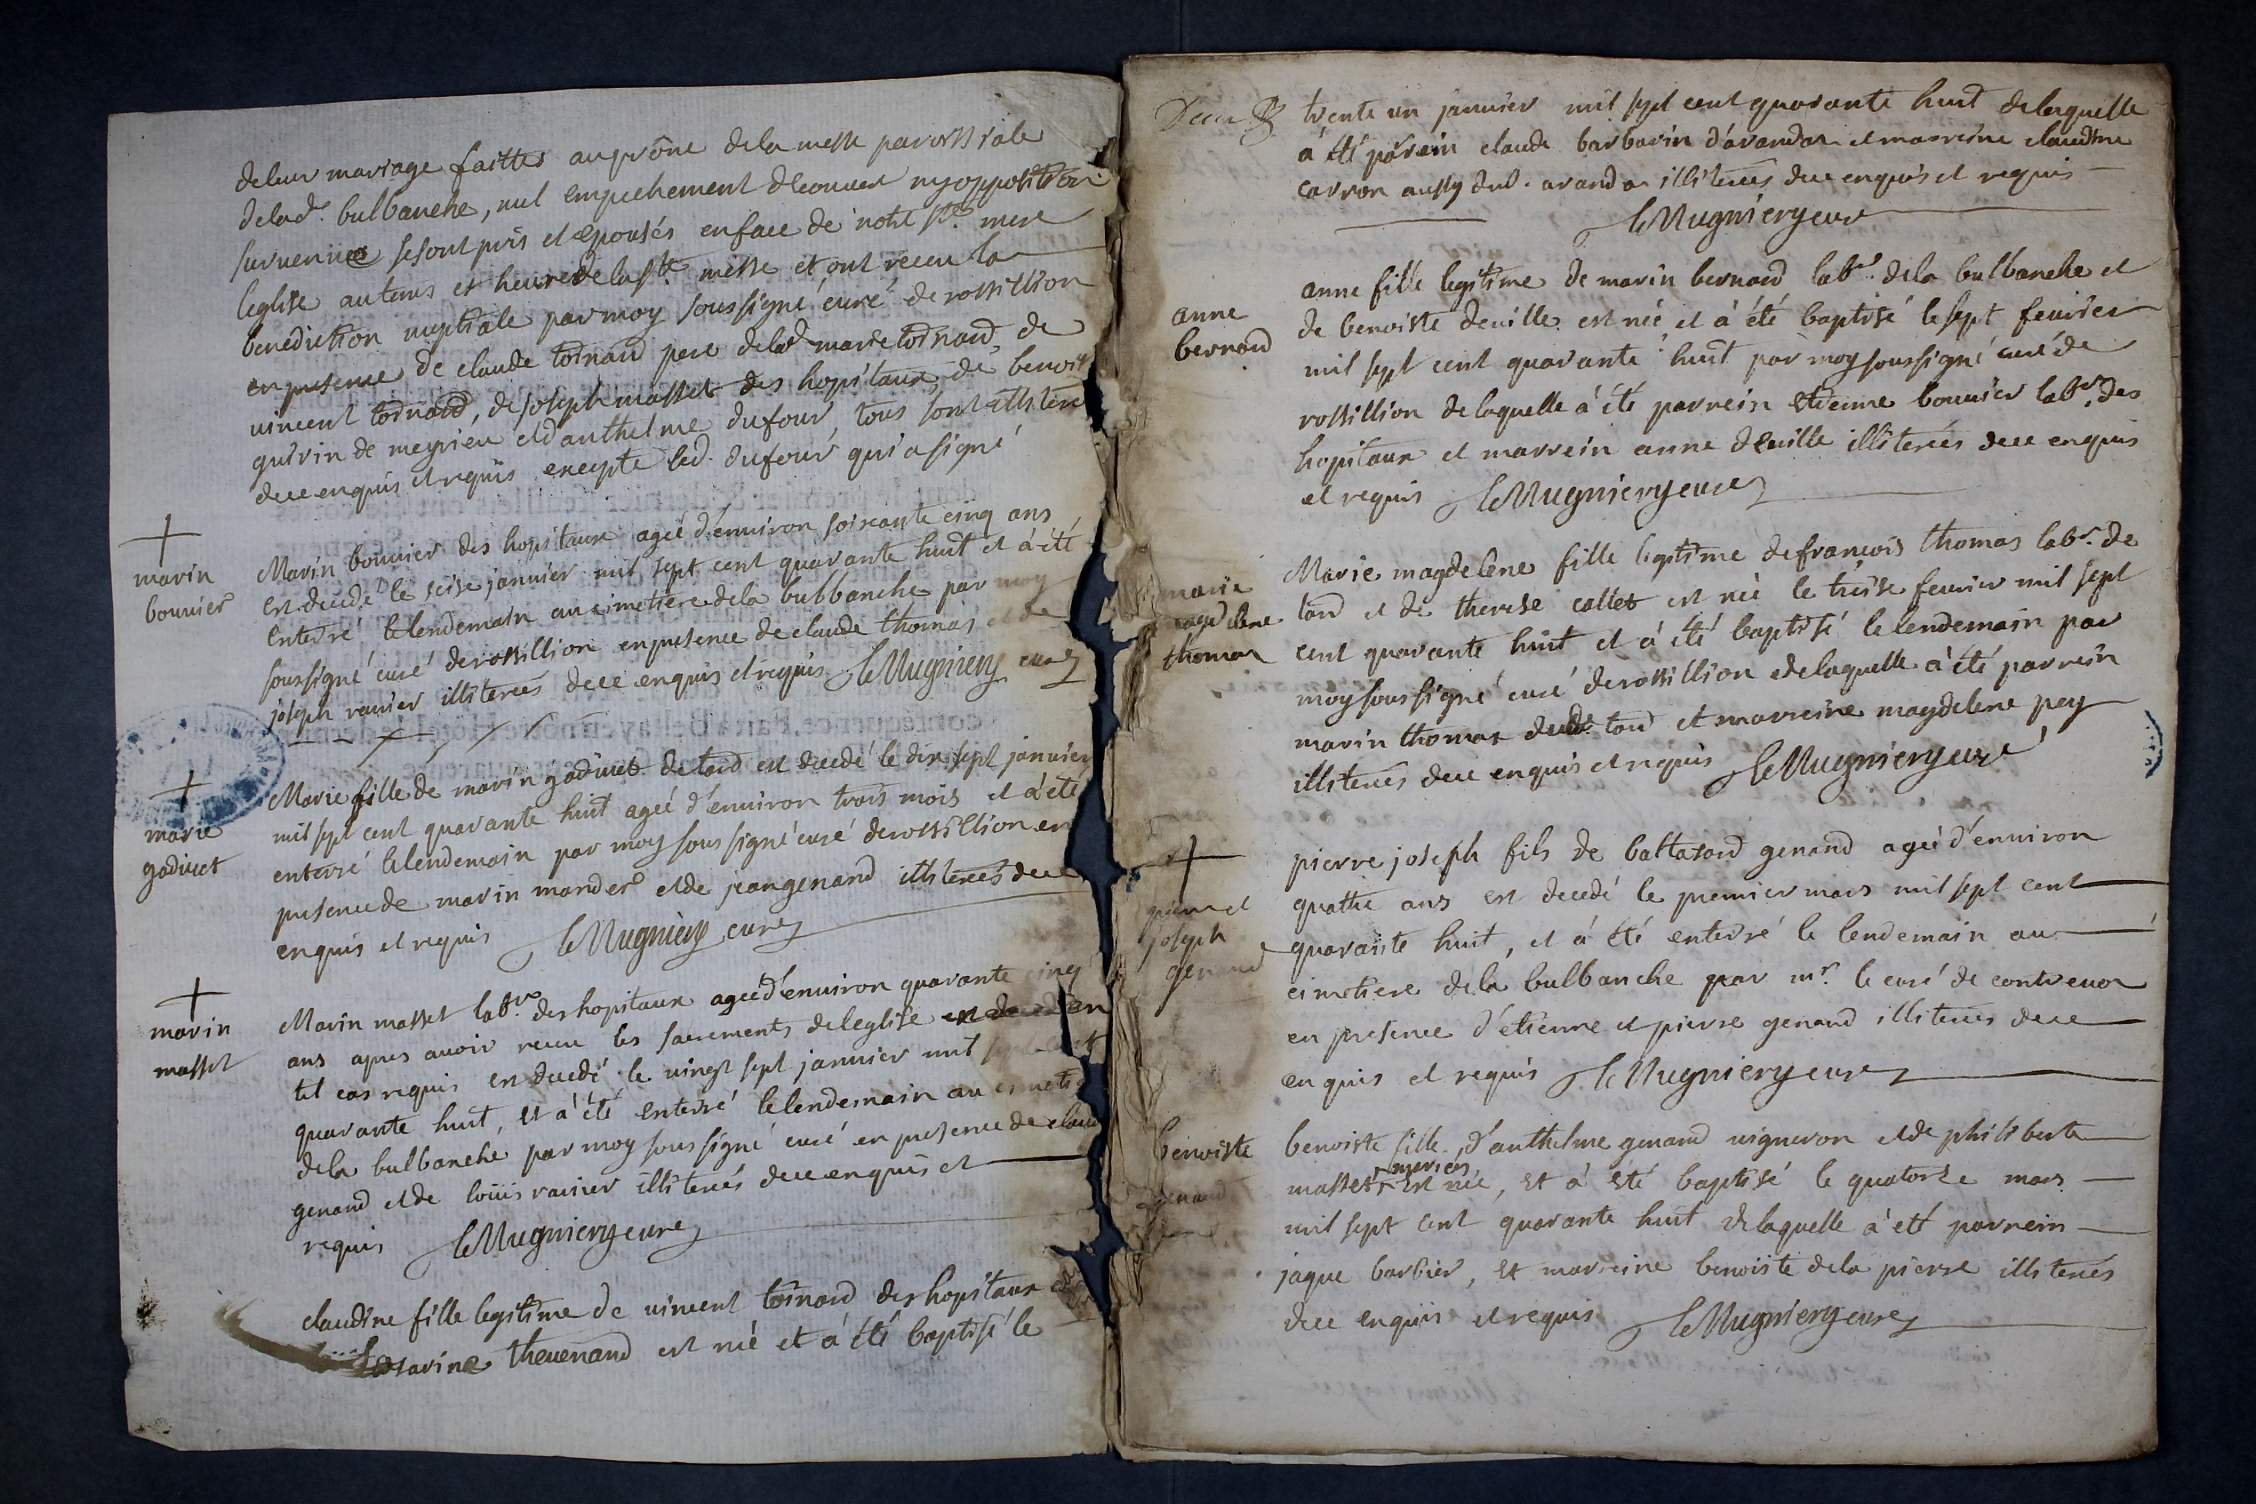 deleur mariage faittes auprône dela messe paroissiale
delad. bulbanche, nul empechement decouvert ny opposition
survenües se sont pris et epousés enface de notre ste. mere
leglise autems et heure dela ste. messe et ont receu la
benediction nuptiale par moy soussigné curé de rossillion
en presence de claude tornard pere delad marie tornard, de
vincent tornard, de joseph masset des hopitaux, de benoit
guirin de meyrieu et d'anthelme dufour, tous sont illiteré
dece enquis et requis excepte led. dufour qui a signé
marin
bouvier
Marin bouvier des hopitaux ageé d'environ soixante cinq ans
est decedé le seise janvier mil sept cent quarante huit et à été
enterré lelendemain au cimetiere dela bulbanche par moy
soussigné curé derossillion enpresence de claude thomas et de
joseph ravier illiterés dece enquis et requis leMugniery curé
marie
godivet
Marie fille de marin godivet de tard est decedé le dix sept janvier
mil sept cent quarante huit ageé d'environ trois mois et à été
enterré lelendemain par moy soussigné curé derossillion en
presence de marin mander et de jean genand illiterés dece
enquis et requis leMugniery curé
marin
masset
Marin masset labr. des hopitaux ageé d'environ quarante cinq
ans apres avoir receu les sacrements deleglise en
tel cas requis est decedé le vingt sept janvier mil
quarante huit, et à été enterré lelendemain au cimeti
dela bulbanche par moy soussigné curé en presence de claud
genand et de loüis ravier illiterés dece enquis et
requis leMugniery curé
claudine fille legitime de vincent tornard des hopitaux
marine thevenand est nié et à été baptisé le
trente un janvier mil sept cent quarante huit delaquelle
à été párein claude barbarin d'arandas et marreine claudine
carron aussy dud. arandas illiterés dece enquis et requis
leMugniery curé
anne
bernard
anne fille legitime de marin bernard labr. dela bulbanche et
de benoiste deville est nié et à été baptisé le sept fevrier
mil sept cent quarante huit par moy soussigné curé de
rossillion delaquelle à été parrein etienne bouvier labr. des
hopitaux et marrein anne deville illiterés dece enquis
et requis leMugniery curé
marie
magdelene
thomas
Marie magdelene fille legitime de francois thomas labr. de
tard et de therese collet est nié le treise fevrier mil sept
cent quarante huit et à été baptisé lelendemain par
moy soussigné curé derossillion delaquelle à été parrein
marin thomas dud. tard et marreine magdelene pey
illiterés dece enquis et requis leMugniery curé
pierre et
joseph
genand
pierre joseph fils de baltasard genand ageé d'environ
quattre ans est decedé le premier mars mil sept cent
quarante huit, et à été enterré le lendemain au
cimetiere dela bulbanche par mr. le curé de contrevoz
en presence d'etienne et pierre genand illiterés dece
enquis et requis leMugniery curé
benoiste
genand
benoiste fille d'anthelme genand vigneron et de philiberte
masset mariés est nié, et à été baptisé le quatorse mars
mil sept cent quarante huit delaquelle à été parrein
jaque barbier, et marreine benoiste dela pierre illiterés
dece enquis et requis leMugniery curé